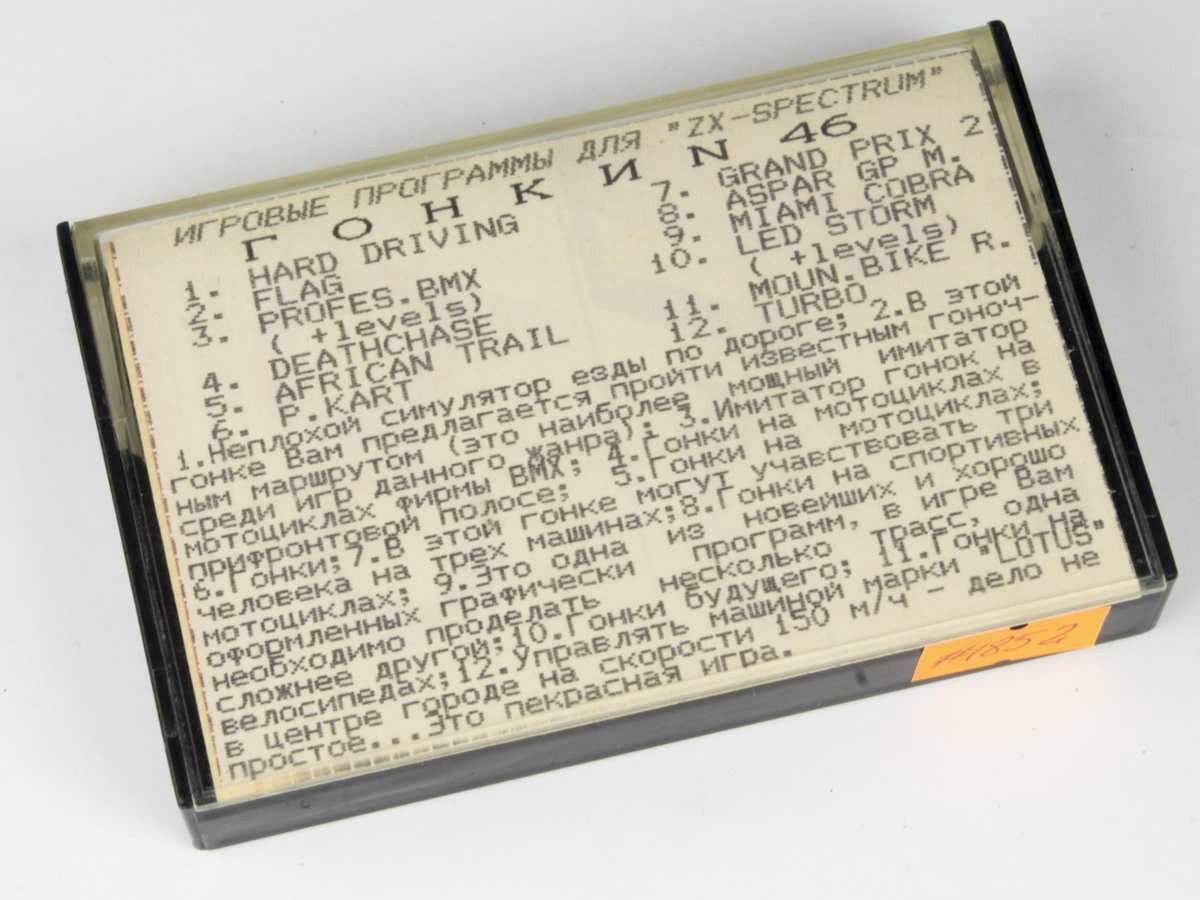 ИГРОВЫЕ ПРОГРАММЫ ДЛЯ "ZX-SPECTRUM"
Г О Н К И N 46
1. HARD DRIVING
2. FLAG
3. PROFES.BMX
( +levels)
4. DEATHCHASE
5. AFRICAN TRAIL
6. P.KART
7. GRAND PRIX 2
8. ASPAR GP M.
9. MIAMI COBRA
10. LED STORM
( +levels)
11. MOUN.BIKE R.
12. TURBO
1.Неплохой симулятор езды по дороге; 2.В этой
гонке Вам предлагается пройти известным гоноч-
ным маршрутом (это наиболее мощный имитатор
среди игр данного жанра); 3.Имитатор гонок на
мотоциклах фирмы BMX; 4.Гонки на мотоциклах в
прифронтовой полосе; 5.Гонки на мотоциклах;
6.Гонки;7.В этой гонке могут учавствовать три
человека на трех машинах;8.Гонки на спортивных
мотоциклах; 9.Это одна из новейших и хорошо
оформленных графически программ, в игре Вам
необходимо проделать несколько трасс, одна
сложнее другой;10.Гонки будущего; 11.Гонки на
велосипедах;12.Управлять машиной марки "LOTUS"
в центре городе на скорости 150 м/ч - дело не
простое...Это пекрасная игра.